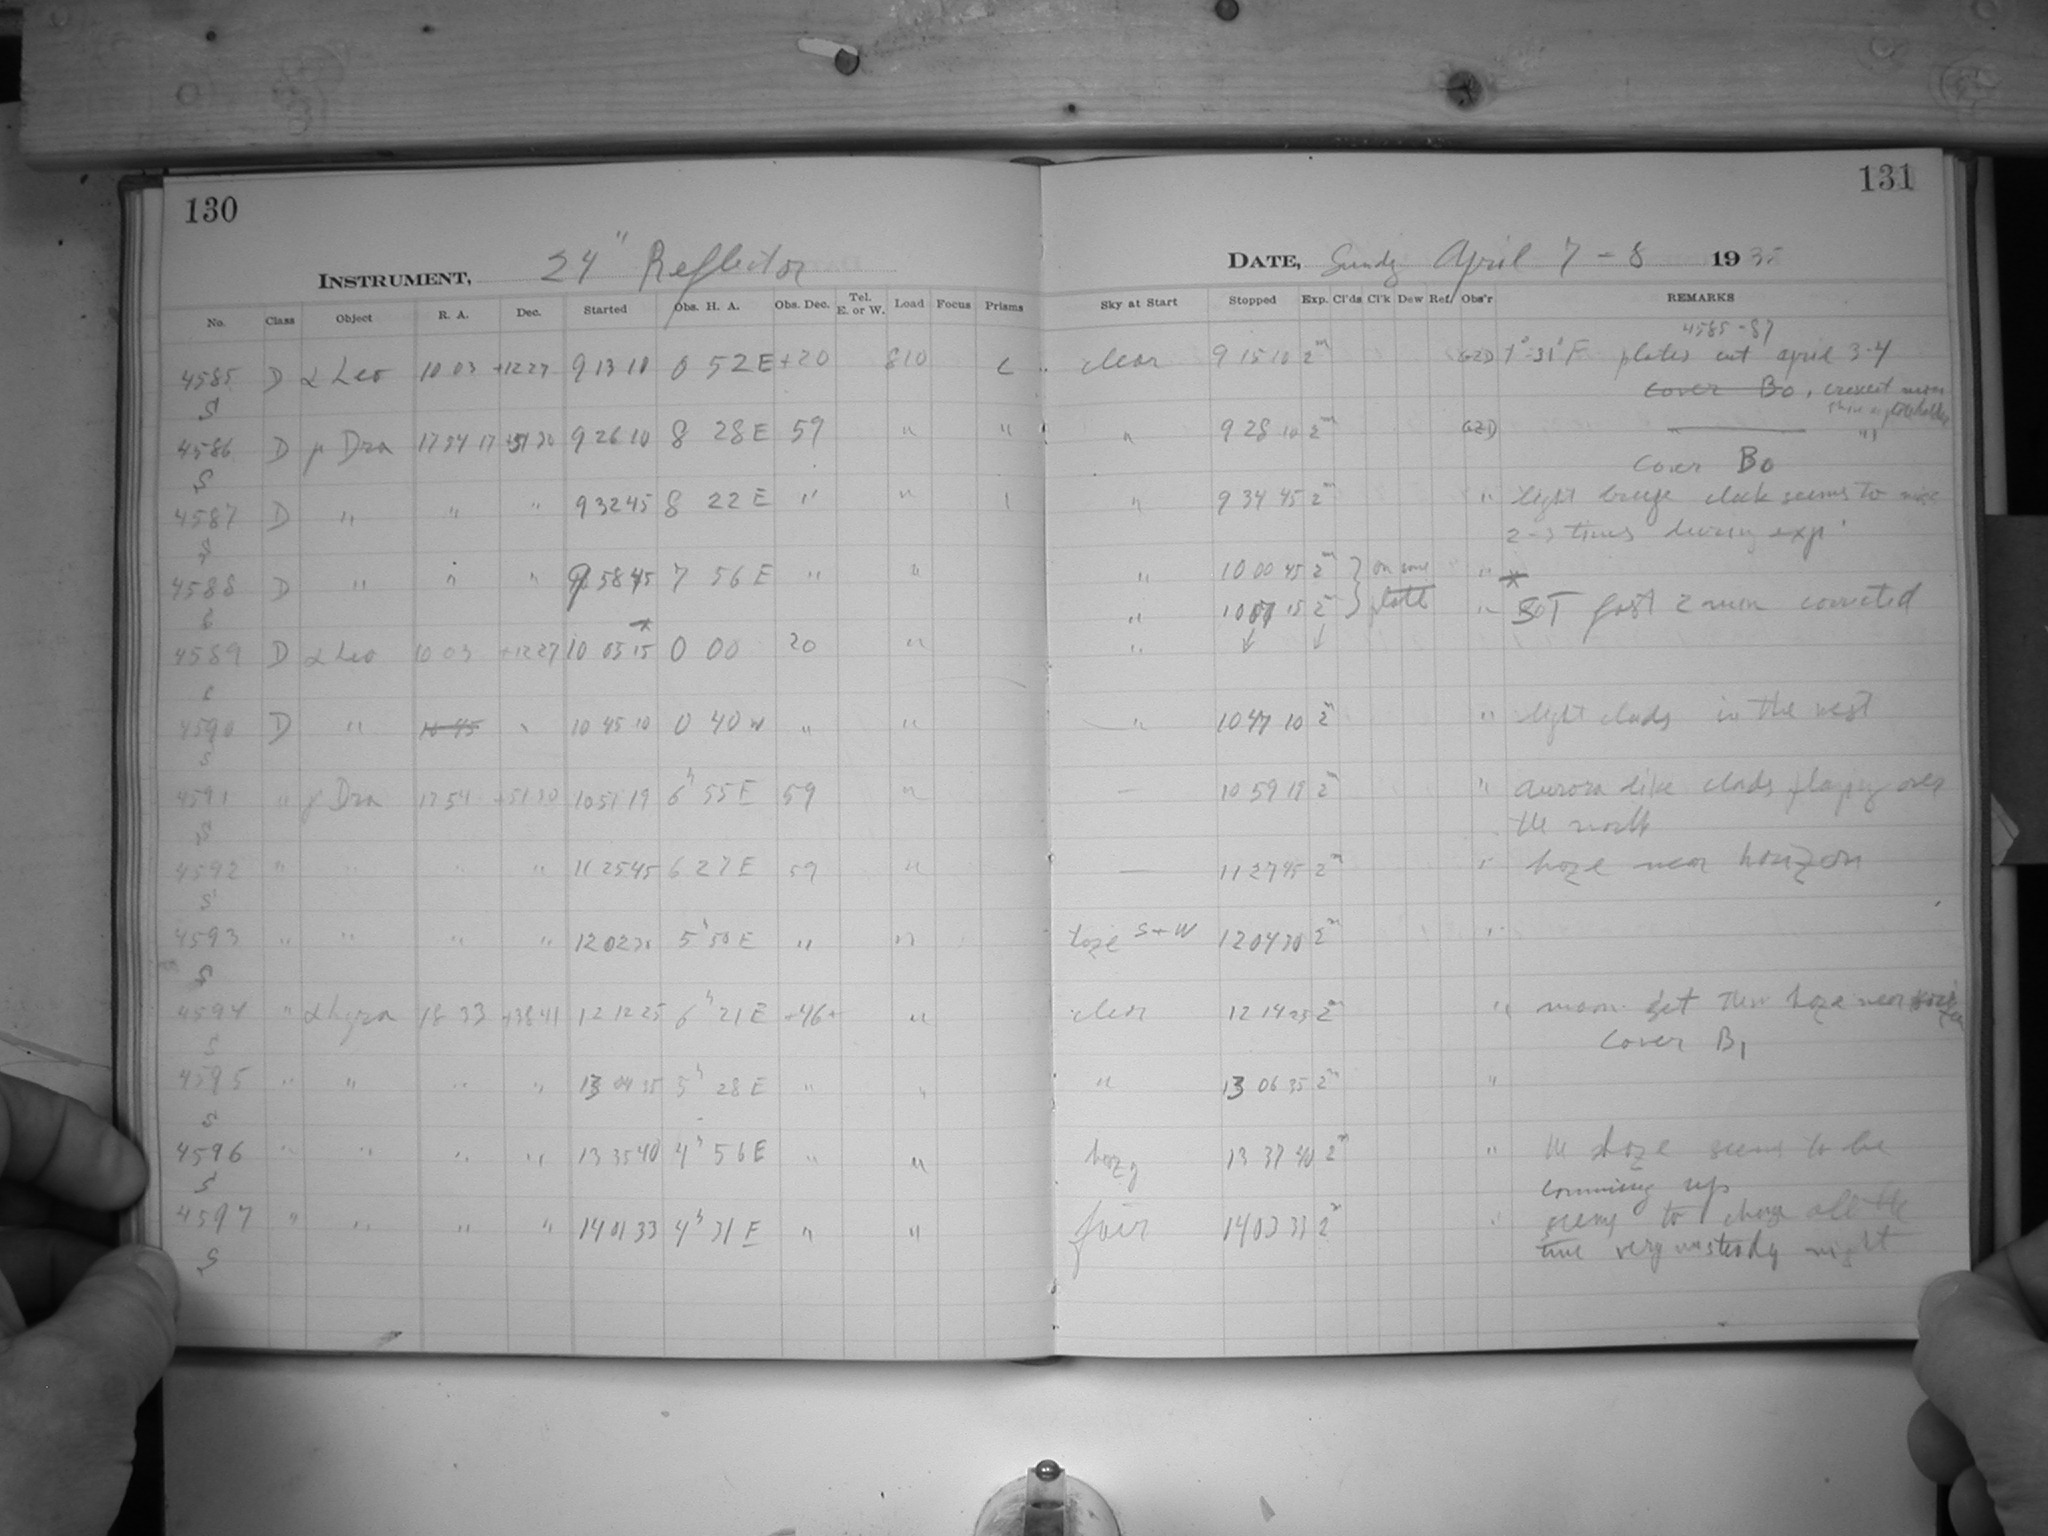 130
INSTRUMENT, 24" Reflector
No. Class Object R. A. Dec. Started Obs. H. A. Obs. Dec. Tel. E. or W. Load Focus Prisms
4585 D α Leo 10 03 +12 27 9 13 10 0 52 E +20 810 C
S
4586 D γ Dra 17 54 17 +51 30 9 26 10 8 28 E 59 " "
S
4587 D " " " 9 32 45 8 22 E " " 1
S
4588 D " " " 9 58 45 7 56 E " "
S
4589 D α Leo 10 03 +12 27 10 05 15 * 0 00 20 "
S
4590 D " 10 45 " 10 45 10 0 40 W " "
S
4591 " γ Dra 17 54 +51 30 10 57 19 6h 55 E 59 "
S
4592 " " " " 11 25 45 6 27 E 59 "
S
4593 " " " " 12 02 30 5h 50 E " "
S
4594 " α Lyra 18 33 +38 41 12 12 25 6h 21 E +46+ "
S
4595 " " " " 13 04 35 5h 28 E " "
S
4596 " " " " 13 35 40 4h 56 E " "
S
4597 " " " " 14 01 33 4h 31 E " "
S
131
DATE, Sundy April 7 - 8 1935
Sky at Start Stopped Exp. Cl'ds Cl'k Dew Ref. Obs'r REMARKS
4585-87
clear 9 15 10 2m GZD plates cut april 3-4
cover Bo, crescent moon
" 9 28 10 2m GZD "
cover Bo
" 9 34 45 2m " light breeze clock seems to
2-3 times during exp.
" 10 00 45 2m } on one " *
" 10 07 15 2m } plate " SOT fast 2 min corrected
"
" 10 47 10 2m " light clouds in the west
— 10 59 19 2m " aurora like clouds playing over
the north
— 11 27 45 2m " haze near horizon
haze S+W 12 04 30 2m "
clear 12 14 25 2m " moon set then haze near horizon
cover B1
" 13 06 35 2m "
hazy 13 37 40 2m " the haze seems to be
comming up
fair 14 03 33 2m " seems to change all the
time very unsteady night